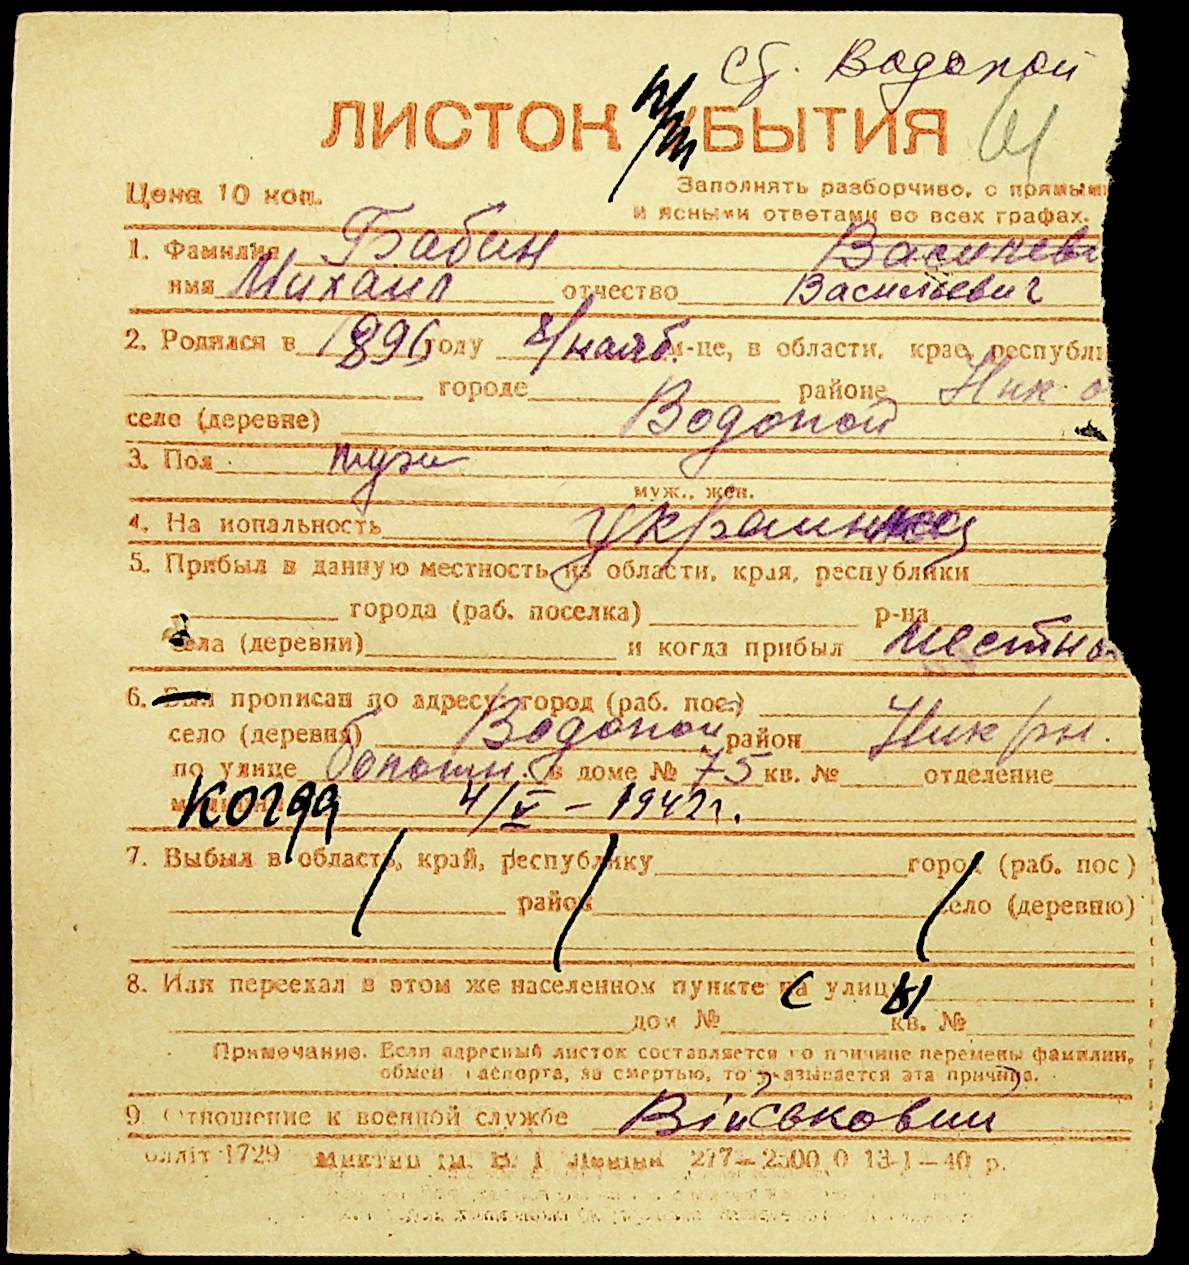 ст. Водопой
ЛИСТОК УБЫТИЯ
Цена 10 коп.
Заполнять разборчиво, с прямыми
и ясными ответами во всех графах.
1. Фамилия Бабин
имя Михаил отчество Васильевич
2. Родился в 1896 году 8/нояб. м-це, в области, крае, республи
городе районе Ник о
село (деревне) Водопой
3. Пол муж
муж., жен.
4. На иональность
5. Прибыл в данную местность из области, края, республики
города (раб. поселка) р-на
села (деревни) и когда прибыл местны
6. Был прописан по адресу: город (раб. пос.)
село (деревня) Водопой район Ник рн.
по улице в доме № 75 кв. № отделение
когда 4/V – 1942 г.
7. Выбыл в область, край, республику город (раб. пос)
район село (деревню)
8. Или переехал в этом же населенном пункте на улицу
дом № кв. №
Примечание. Если адресный листок составляется по причине перемены фамилии,
обмен паспорта, за смертью, то указывается эта причина.
9 Отношение к военной службе Військовий
1729 277–2500 0 13-I–40 р.